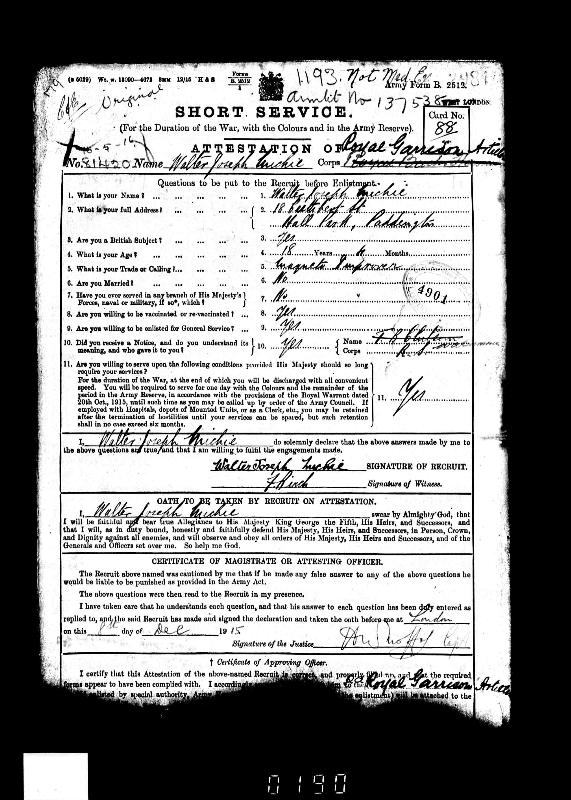 (B 5029) Wt. w. 18090—4073 50M 12/15 H & S Forms B. 2512 1 1193. Not Med Ex
Original Army Form B. 2512.
Armlet No 137538 WEST LONDON
SHORT SERVICE.
Card No. 88
(For the Duration of the War, with the Colours and in the Army Reserve).
ATTESTATION OF Royal Garrison
No. 81420 Name Walter Joseph Michie Corps
Questions to be put to the Recruit before Enlistment.
1. What is your Name? ... ... 1. Walter Joseph Michie
2. What is your full Address? ... ... 2. 18
Hall Park, Paddington
3. Are you a British Subject? ... ... 3. Yes
4. What is your Age? ... ... 4. 18 Years 6 Months
5. What is your Trade or Calling? ... ... 5. Magneto Improver
6. Are you Married? ... ... 6. No
4901
7. Have you ever served in any branch of His Majesty's
Forces, naval or military, if so*, which? 7. No
8. Are you willing to be vaccinated or re-vaccinated? ... 8. Yes
9. Are you willing to be enlisted for General Service? ... 9. Yes
10. Did you receive a Notice, and do you understand its
meaning, and who gave it to you? 10. Yes Name
Corps
11. Are you willing to serve upon the following conditions provided His Majesty should so long
require your services?
For the duration of the War, at the end of which you will be discharged with all convenient
speed. You will be required to serve for one day with the Colours and the remainder of the
period in the Army Reserve, in accordance with the provisions of the Royal Warrant dated
20th Oct., 1915, until such time as you may be called up by order of the Army Council. If
employed with Hospitals, depots of Mounted Units, or as a Clerk, etc., you may be retained
after the termination of hostilities until your services can be spared, but such retention
shall in no case exceed six months.
11. Yes
I, Walter Joseph Michie do solemnly declare that the above answers made by me to
the above questions are true, and that I am willing to fulfil the engagements made.
Walter Joseph Michie SIGNATURE OF RECRUIT.
Signature of Witness.
OATH TO BE TAKEN BY RECRUIT ON ATTESTATION.
I, Walter Joseph Michie swear by Almighty God, that
I will be faithful and bear true Allegiance to His Majesty King George the Fifth, His Heirs, and Successors, and
that I will, as in duty bound, honestly and faithfully defend His Majesty, His Heirs, and Successors, in Person, Crown,
and Dignity against all enemies, and will observe and obey all orders of His Majesty, His Heirs and Successors, and of the
Generals and Officers set over me. So help me God.
CERTIFICATE OF MAGISTRATE OR ATTESTING OFFICER.
The Recruit above named was cautioned by me that if he made any false answer to any of the above questions he
would be liable to be punished as provided in the Army Act.
The above questions were then read to the Recruit in my presence.
I have taken care that he understands each question, and that his answer to each question has been duly entered as
replied to, and the said Recruit has made and signed the declaration and taken the oath before me at London
on this day of Dec 1915
Signature of the Justice
† Certificate of Approving Officer.
I certify that this Attestation of the above-named Recruit is correct, and properly filled up, and that the required
forms appear to have been complied with. I accordingly Royal Garrison
enlisted by special authority, Army enlistment) will be attached to the
0190